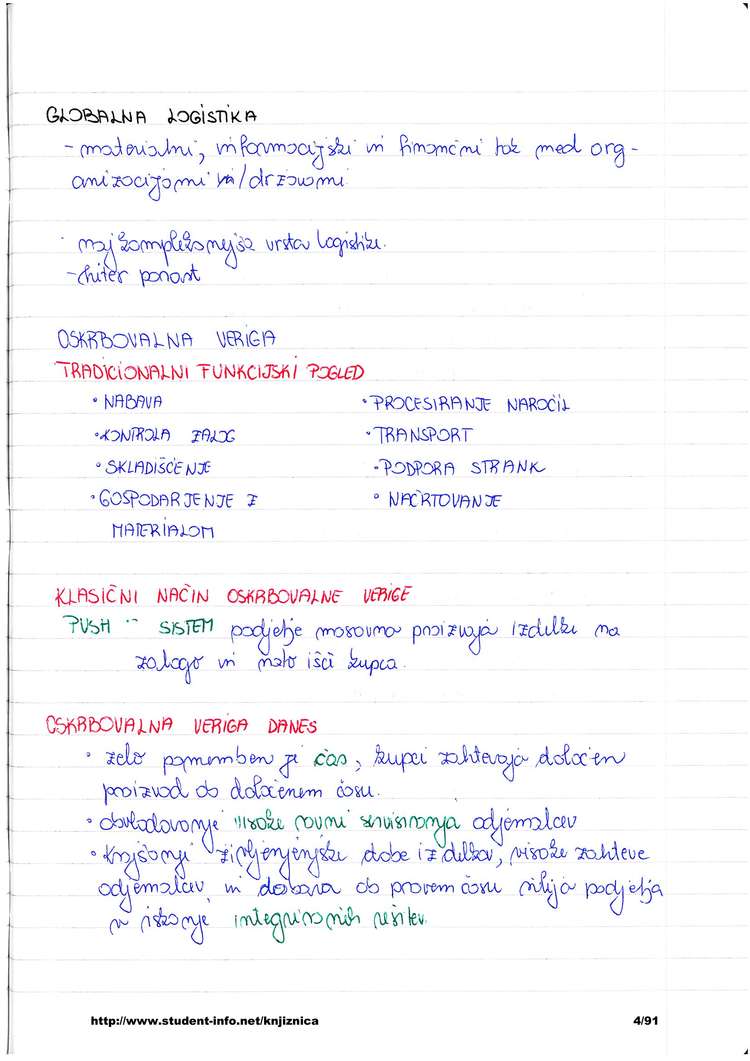 GLOBALNA LOGISTIKA
- materialni, informacijski in finančni tok med org -
anizacijami in/državami
· najkompleksnejša vrsta logistike.
- hiter porast
OSKRBOVALNA VERIGA
TRADICIONALNI FUNKCIJSKI POGLED
• NABAVA
• PROCESIRANJE NAROČIL
• KONTROLA ZALOG
• TRANSPORT
• SKLADIŠČENJE
• PODPORA STRANK
• GOSPODARJENJE Z
• NAČRTOVANJE
MATERIALOM
KLASIČNI NAČIN OSKRBOVALNE VERIGE
PUSH SISTEM podjetje masovno proizvaja izdelke na
zalogo in nato išči kupca.
OSKRBOVALNA VERIGA DANES
• zelo pomemben je čas, kupci zahtevajo določen
proizvod ob določenem času.
• obvladovanje visoke ravni servisiranja odjemalcev
• Krajšanje življenjenjske dobe izdelkov, visoke zahteve
odjemalcev in dobava ob pravem času silijo podjetja
v iskanje integriranih rešitev.
http://www.student-info.net/knjiznica
4/91